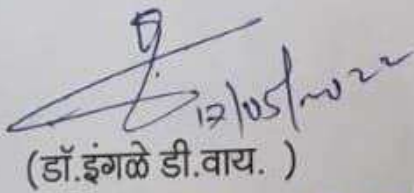 12/05/2022
(डॉ.इंगळे डी.वाय. )